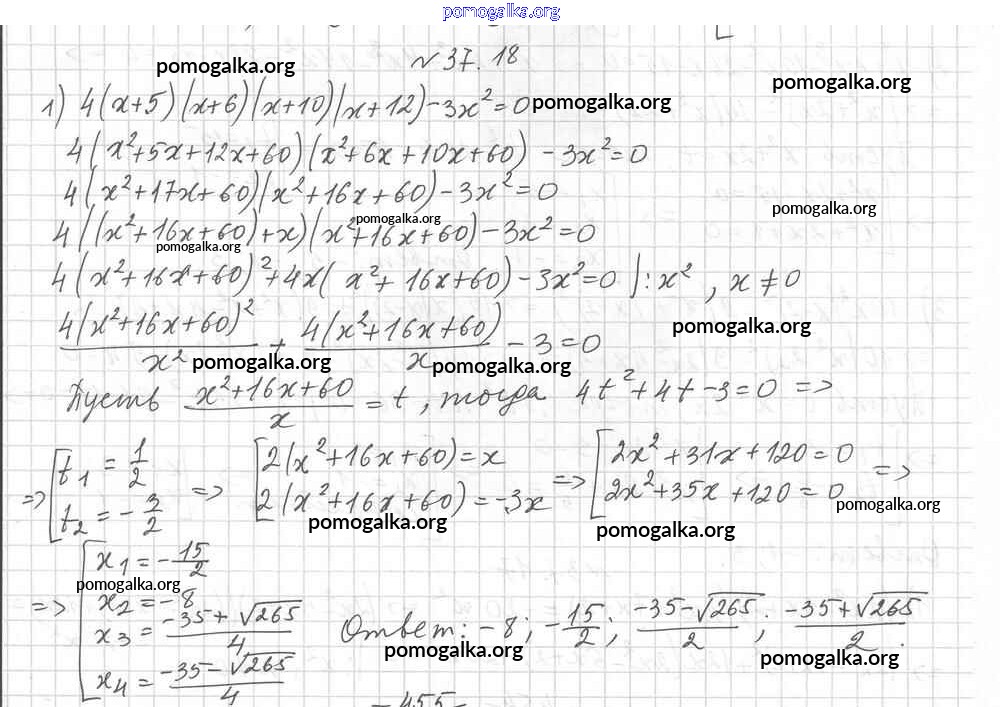 pomogalka.org
№ 37.18
pomogalka.org
pomogalka.org
1) 4(x+5)(x+6)(x+10)(x+12)-3x²=0 pomogalka.org
4(x²+5x+12x+60)(x²+6x+10x+60)-3x²=0
4(x²+17x+60)(x²+16x+60)-3x²=0
pomogalka.org
pomogalka.org
4((x²+16x+60)+x)(x²+16x+60)-3x²=0
pomogalka.org
4(x²+16x+60)²+4x(x²+16x+60)-3x²=0 |:x², x≠0
pomogalka.org
4(x²+16x+60)²/x² + 4(x²+16x+60)/x - 3=0
pomogalka.org pomogalka.org
Пусть (x²+16x+60)/x = t, тогда 4t²+4t-3=0 =>
=> [t₁ = 1/2 => [2(x²+16x+60)=x => [2x²+31x+120=0 =>
t₂ = -3/2 2(x²+16x+60)=-3x 2x²+35x+120=0
pomogalka.org
pomogalka.org pomogalka.org
=> [x₁ = -15/2
pomogalka.org
x₂ = -8
x₃ = (-35+√265)/4
x₄ = (-35-√265)/4
Ответ: -8; -15/2; (-35-√265)/2; (-35+√265)/2.
pomogalka.org pomogalka.org
-455-